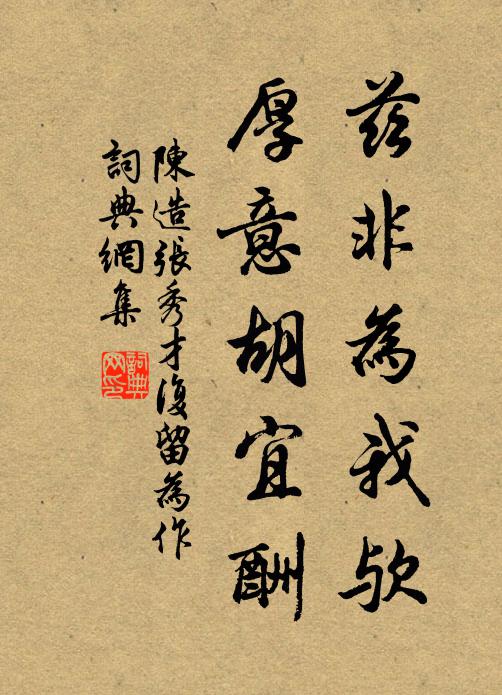 茲非為我歟
厚意胡宜酬
陳造張秀才復留為作
詞典網集
詞典網印